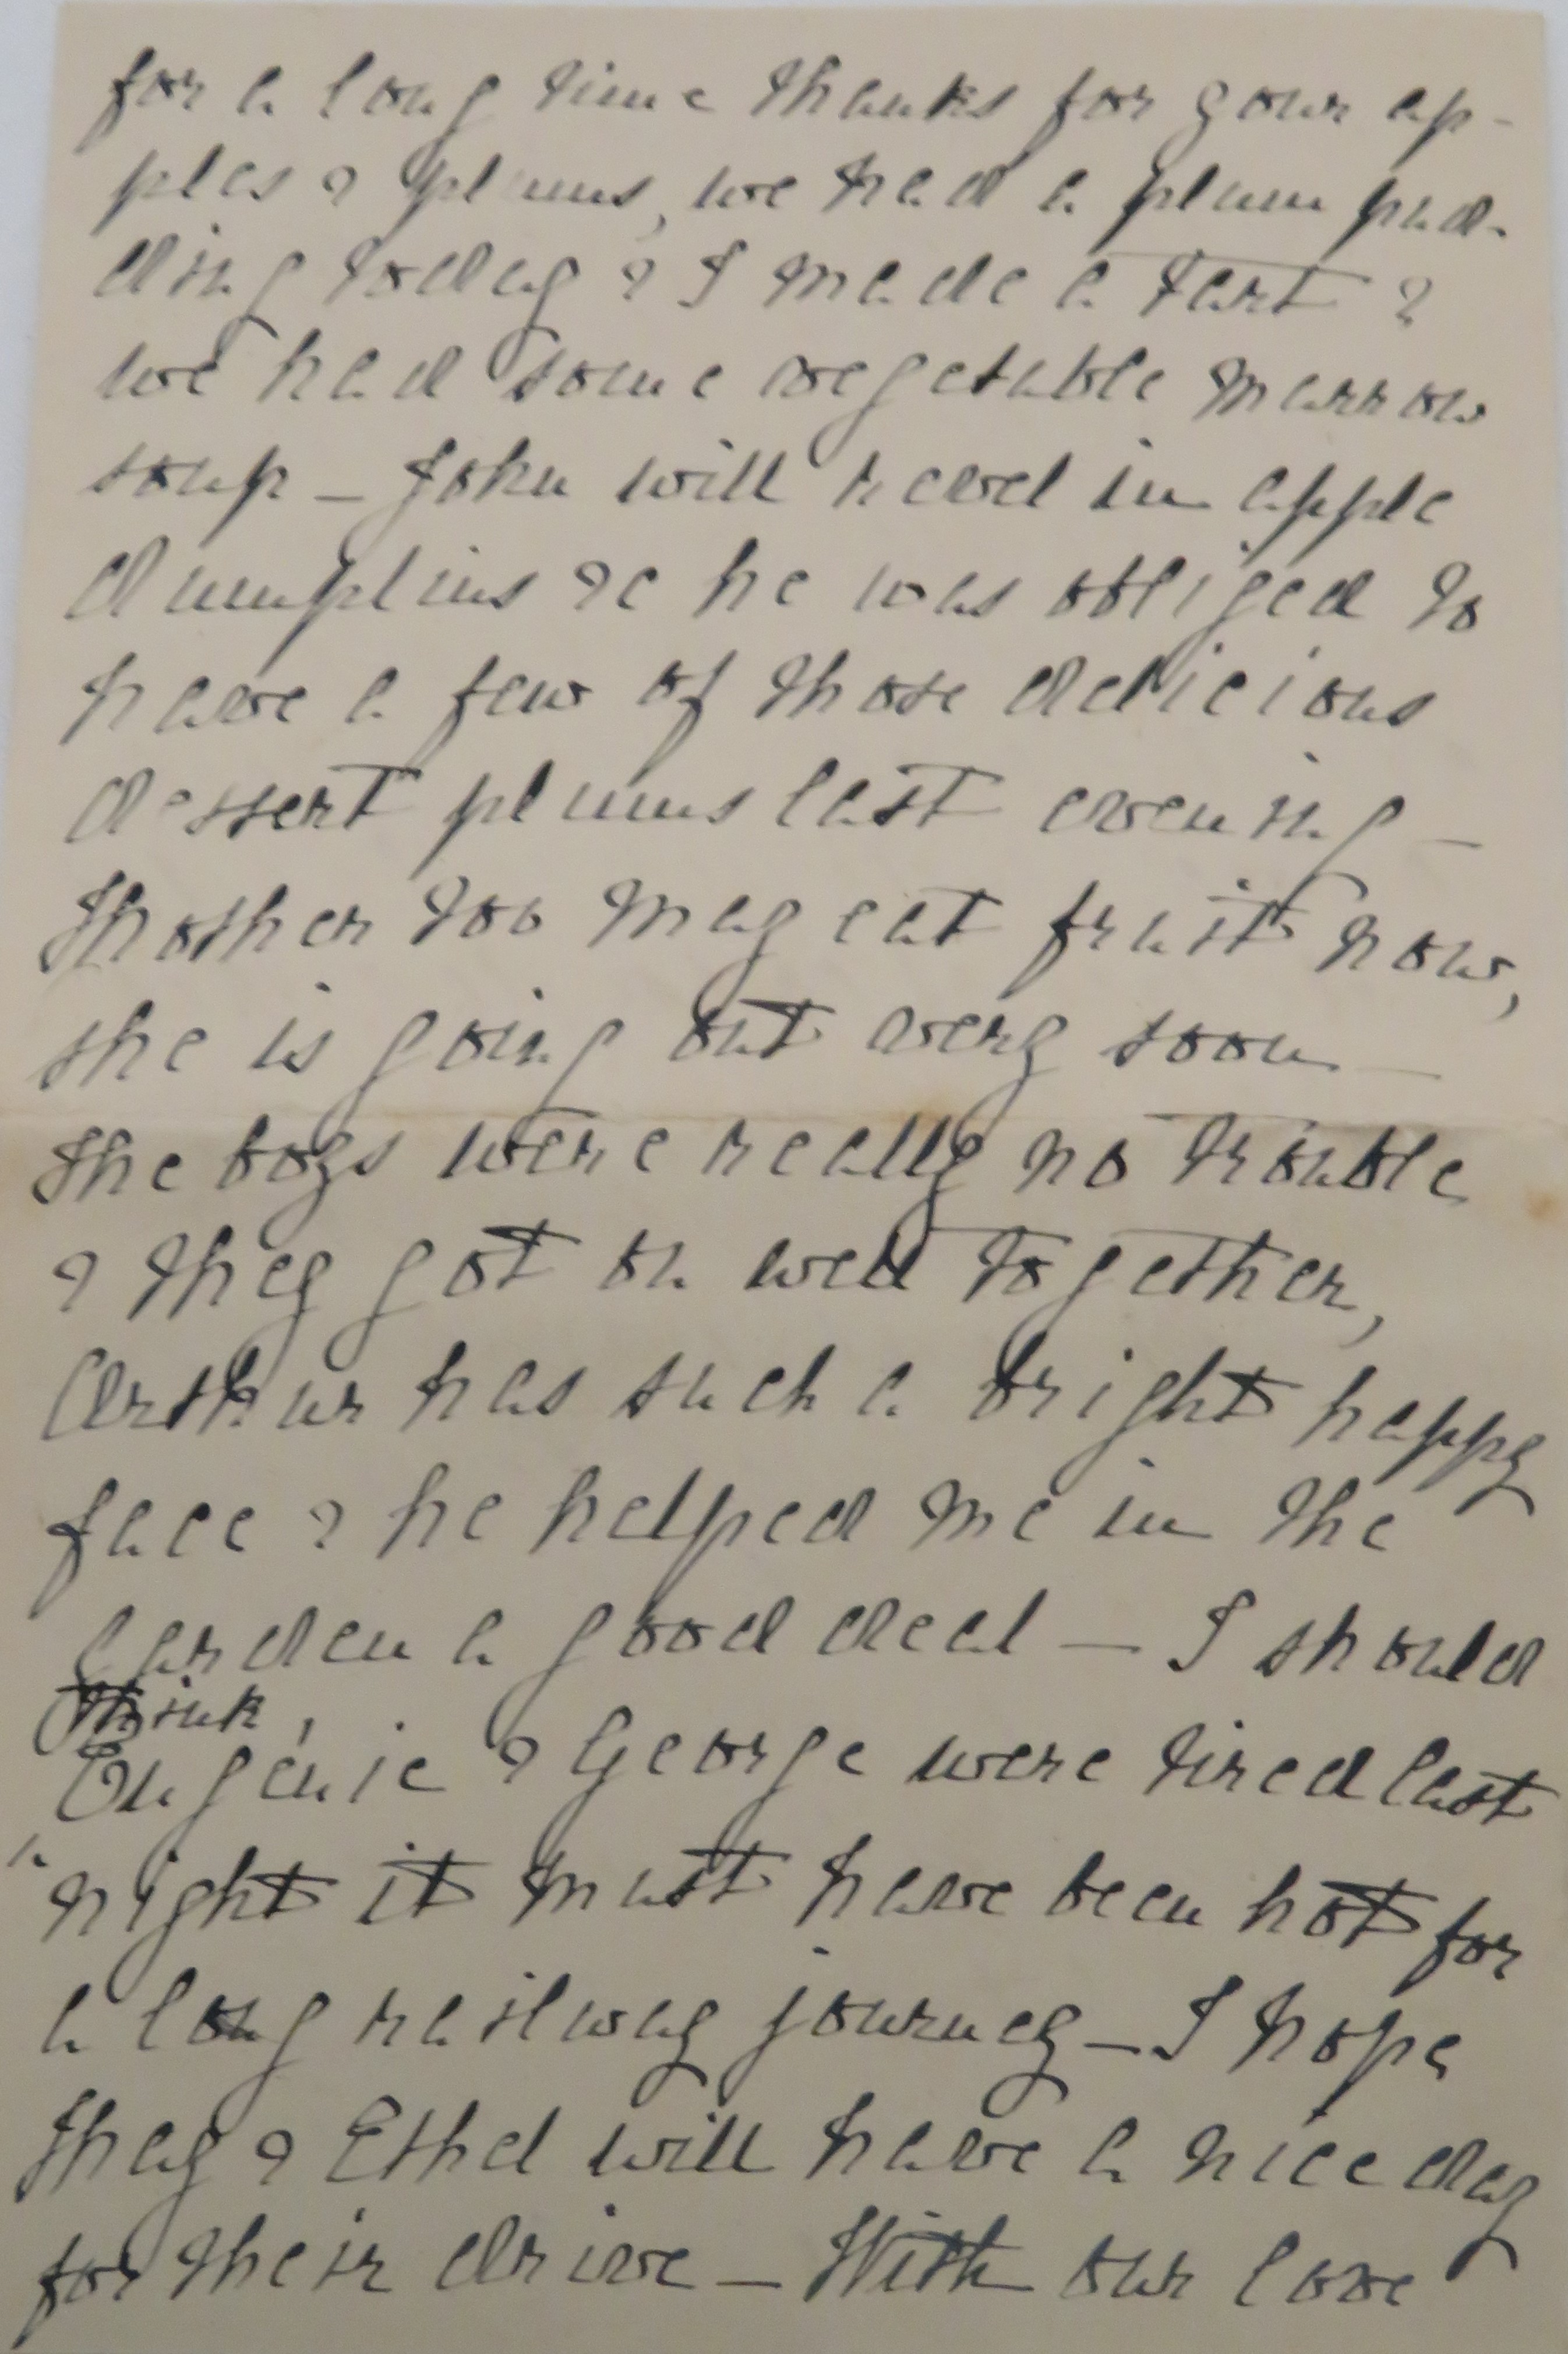 for a long time thanks for your ap-
ples & plums, we had a plum pud-
ding today & I made a tart &
we had some vegetable marrow
soup - John will revel in apple
dumplins &c he was obliged to
have a few of those delicious
dessert plums last evening -
Mother too may eat fruit now,
she is going out very soon -
The boys were really no trouble
& they got on well together,
Arthur has such a bright happy
face & he helped me in the
garden a good deal - I should
think,
Eugénie & George were tired last
night it must have been hot for
a long railway journey - I hope
they & Ethel will have a nice day
for their drive - With our love